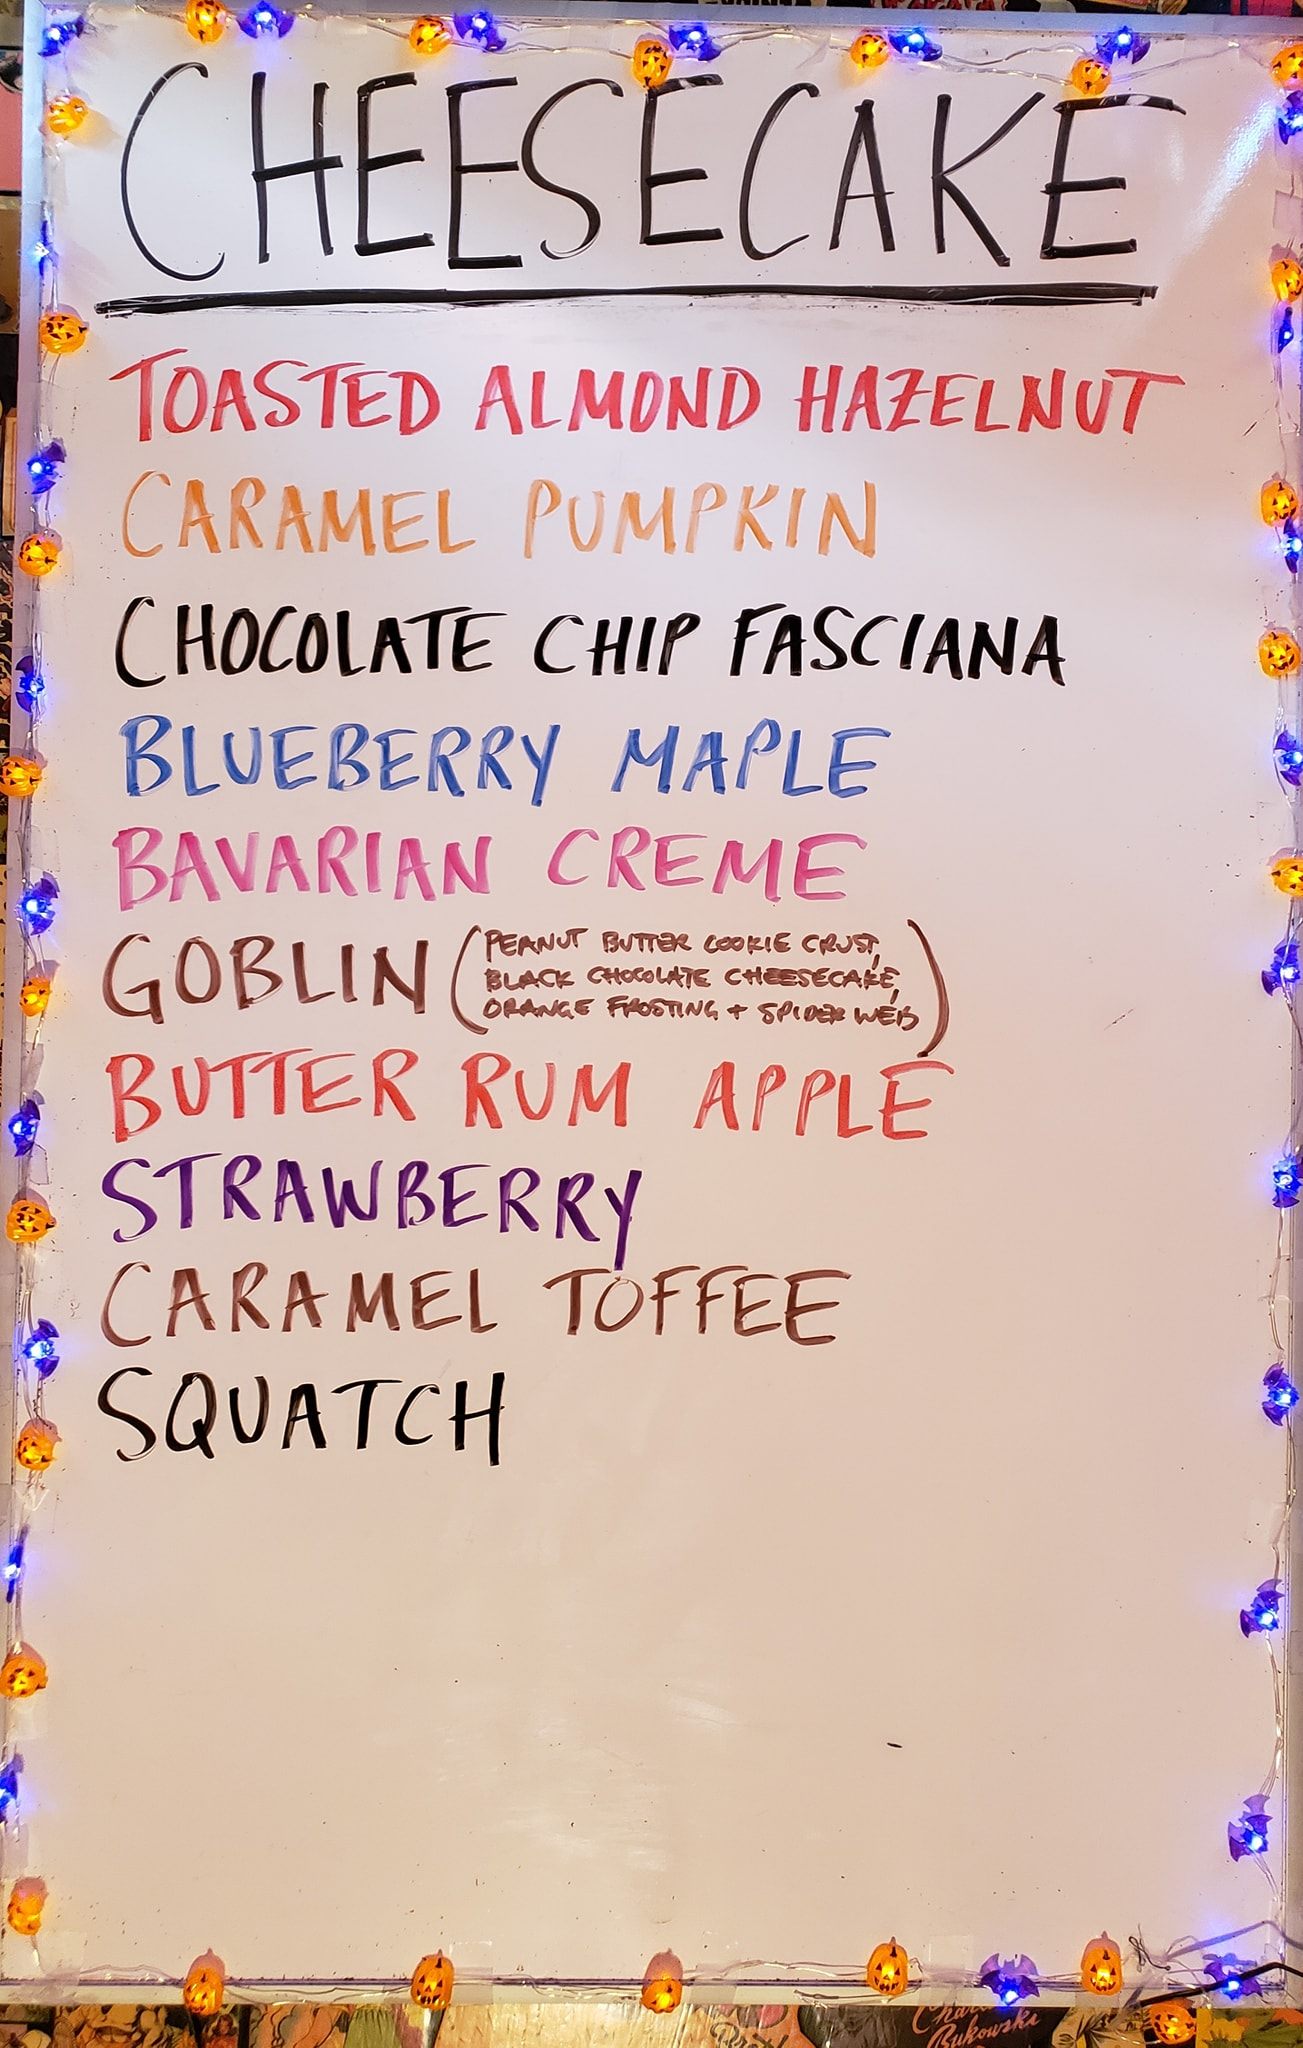 CHEESECAKE
TOASTED ALMOND HAZELNUT
CARAMEL PUMPKIN
CHOCOLATE CHIP FASCIANA
BLUEBERRY MAPLE
BAVARIAN CREME
GOBLIN (PEANUT BUTTER COOKIE CRUST,
BLACK CHOCOLATE CHEESECAKE,
ORANGE FROSTING + SPIDER WEB)
BUTTER RUM APPLE
STRAWBERRY
CARAMEL TOFFEE
SQUATCH
Bukowski